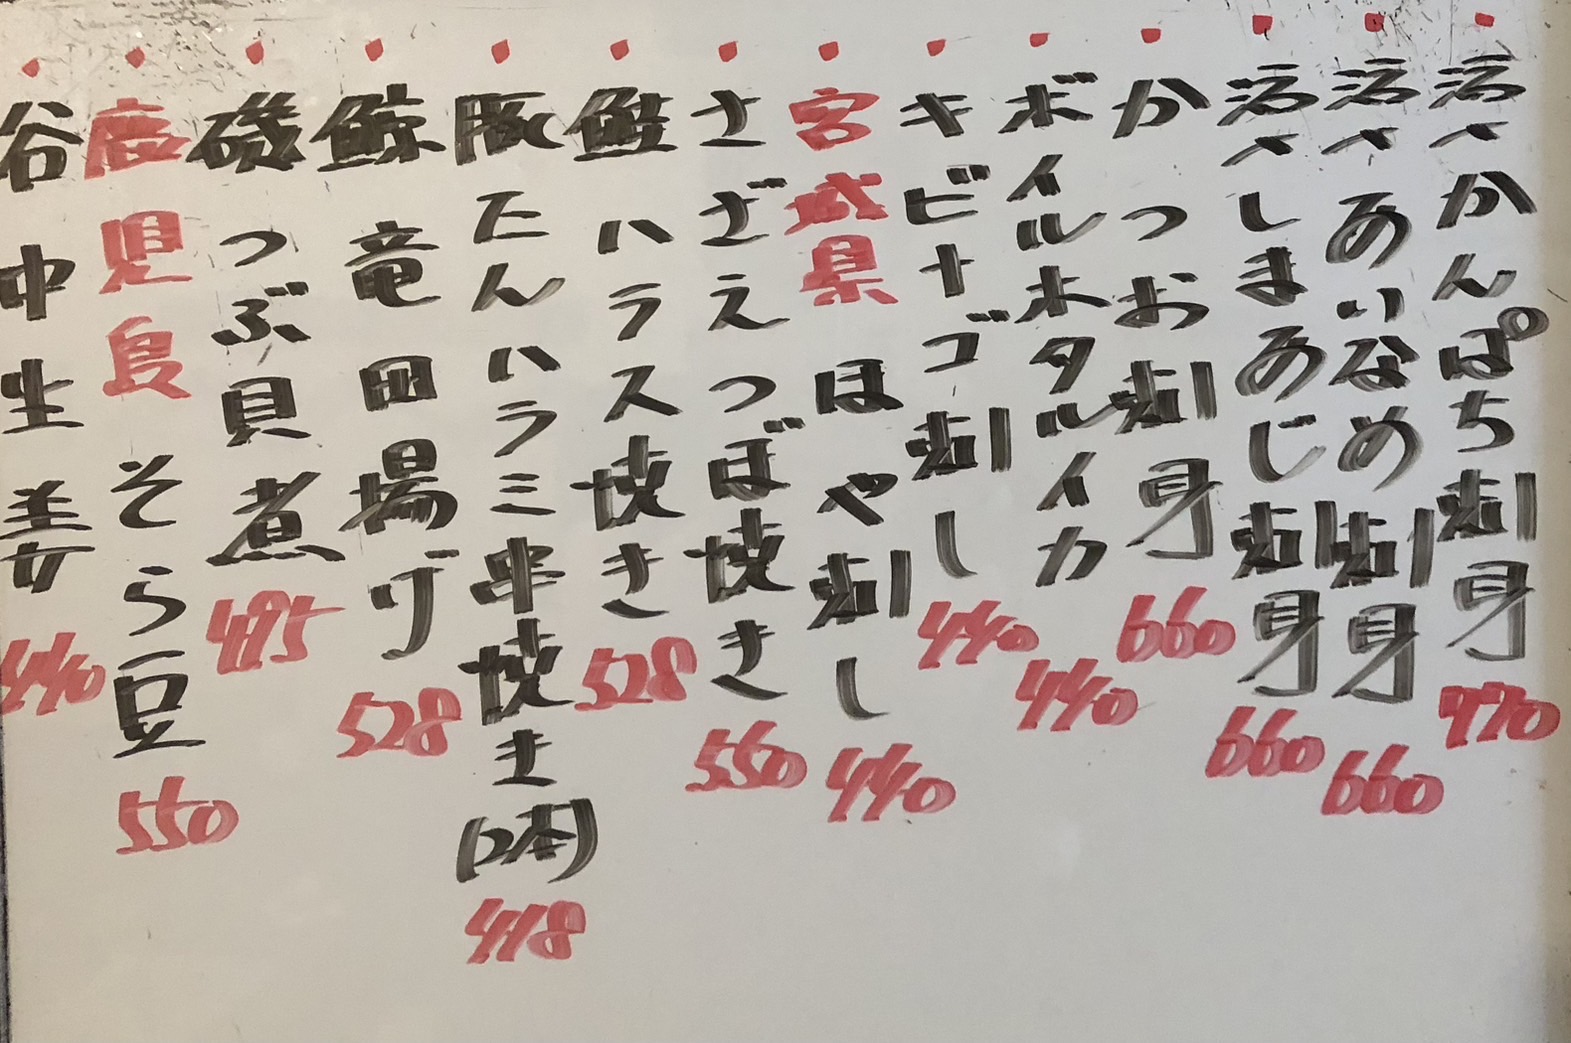 活〆かんぱち刺身 770
活〆あいなめ刺身 660
活〆しまあじ刺身 660
かつお刺身 660
ボイルホタルイカ 440
キビナゴ刺し 440
宮城県 ほや刺し 440
さざえつぼ焼き 550
鮭ハラス焼き 528
豚たんハラミ串焼き(2本) 418
鯨竜田揚げ 528
磯つぶ貝煮 495
鹿児島 そら豆 550
谷中生姜 440